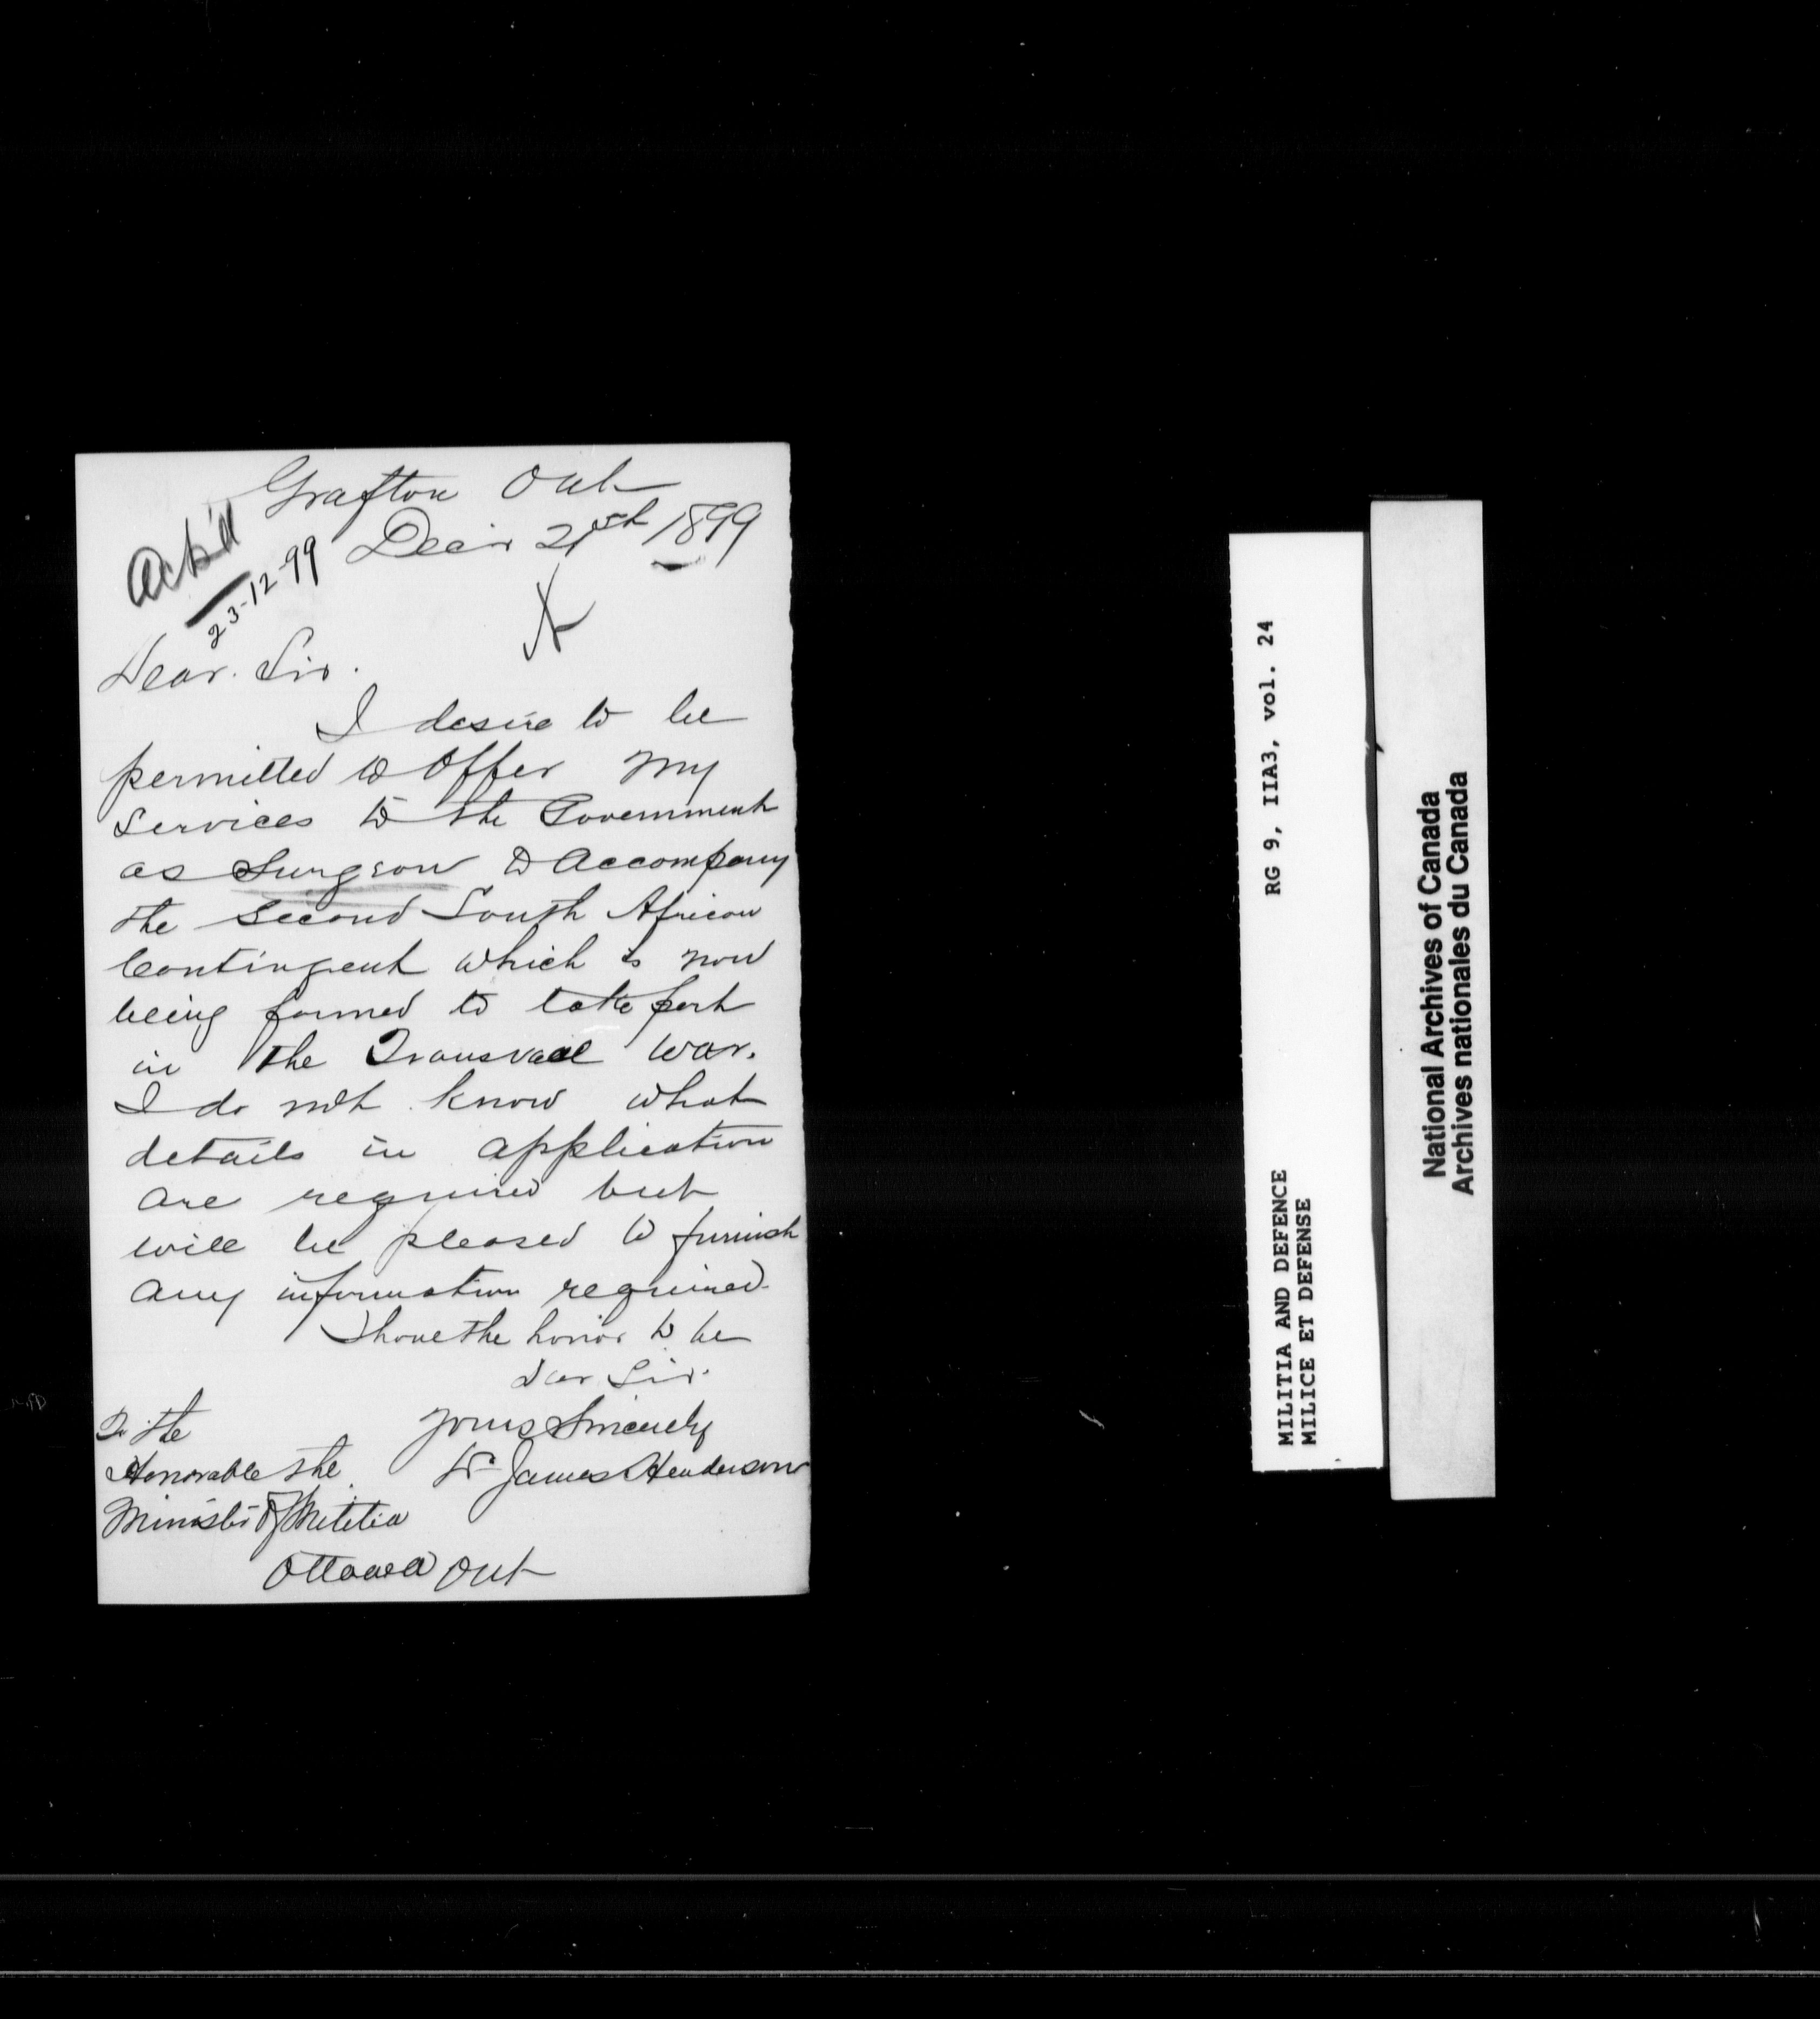 Grafton Ont
Dec 21st 1899
Ack'd
23-12-99
X
Dear Sir.
I desire to be
permitted to offer my
services to the Government
as Surgeon to accompany
the second South African
Contingent which is now
being formed to take part
in the Transvaal war.
I do not know what
details in application
are required but
will be pleased to furnish
any information required.
I have the honor to be
Dear Sir.
Yours Sincerely
Dr James Henderson
To the
Honorable the
Minister of Militia
Ottawa Ont
RG 9, IIA3, vol. 24
MILITIA AND DEFENCE
MILICE ET DEFENSE
National Archives of Canada
Archives nationales du Canada